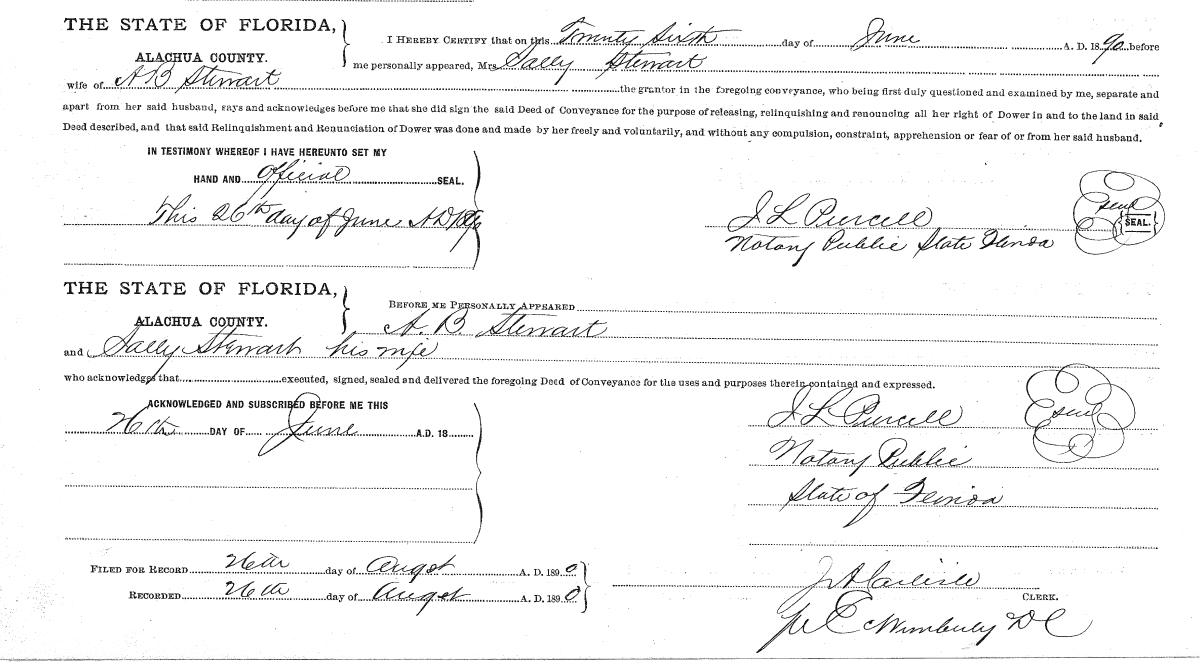 THE STATE OF FLORIDA,
ALACHUA COUNTY.
I HEREBY CERTIFY that on this Twenty Sixth day of June A. D. 1890 before
me personally appeared, Mrs Sally Stewart
wife of A B Stewart the grantor in the foregoing conveyance, who being first duly questioned and examined by me, separate and
apart from her said husband, says and acknowledges before me that she did sign the said Deed of Conveyance for the purpose of releasing, relinquishing and renouncing all her right of Dower in and to the land in said
Deed described, and that said Relinquishment and Renunciation of Dower was done and made by her freely and voluntarily, and without any compulsion, constraint, apprehension or fear of or from her said husband.
IN TESTIMONY WHEREOF I HAVE HEREUNTO SET MY
HAND AND Official SEAL.
This 26th day of June A D 1890
J L Purcell
Notary Public State Florida
Seal
{SEAL.}
THE STATE OF FLORIDA,
ALACHUA COUNTY.
BEFORE ME PERSONALLY APPEARED
A. B. Stewart
and Sally Stewart his wife
who acknowledges that executed, signed, sealed and delivered the foregoing Deed of Conveyance for the uses and purposes therein contained and expressed.
ACKNOWLEDGED AND SUBSCRIBED BEFORE ME THIS
26th DAY OF June A.D. 18
J L Purcell
Notary Public
State of Florida
Seal
FILED FOR RECORD 26th day of Augst A. D. 1890
RECORDED 26th day of Augst A. D. 1890
J A Carlisle
CLERK.
Wimberly D C